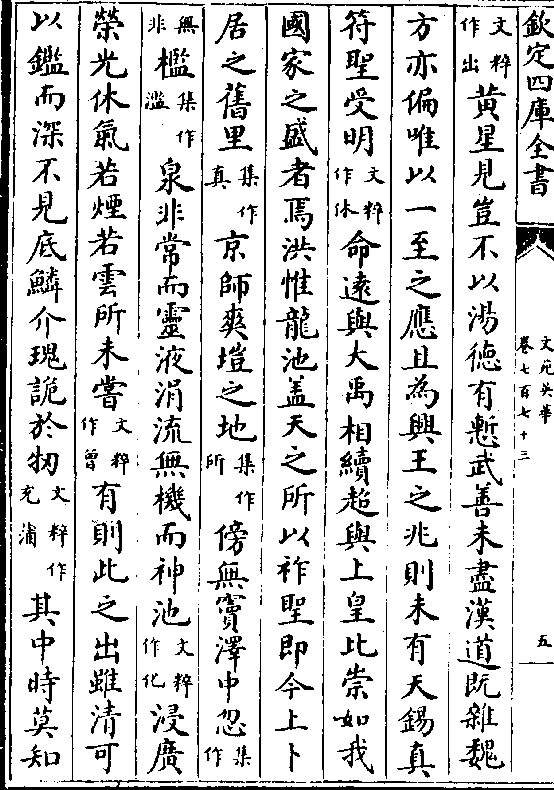 欽定四庫全書
文苑英華
卷七百七十三
五
文粹作出黃星見豈不以湯徳有慙武善未盡漢道既雜魏
方亦偏唯以一至之應且為興王之兆則未有天錫真
符聖受明文粹作休命遠與大禹相續超與上皇比崇如我
國家之盛者焉洪惟龍池盖天之所以祚聖即今上卜
居之舊里集作真京師爽塏之地集作所傍無竇澤中忽集作
無非檻集作濫泉非常而靈液涓流無機而神池文粹作化浸廣
榮光休氣若煙若雲所未嘗文粹作曾有則此之出雖清可
以鑑而深不見底鱗介瑰詭於牣文粹作充滿其中時莫知